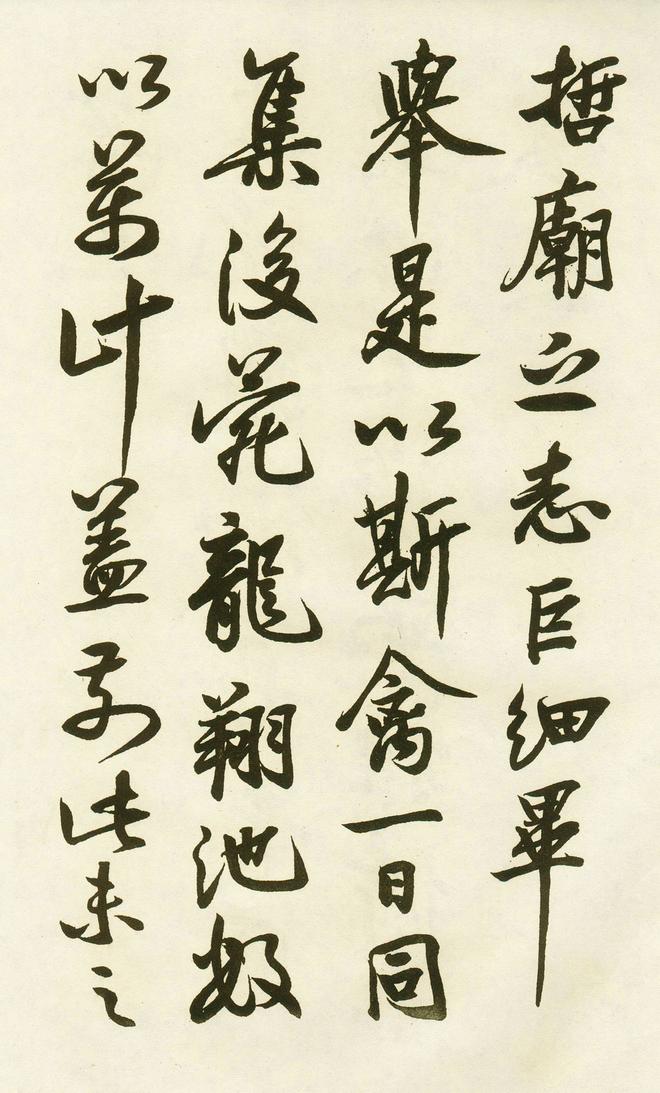 哲廟之志巨細畢
舉是以斯禽一日同
集後苑龍翔池數
以萬計蓋前此未之